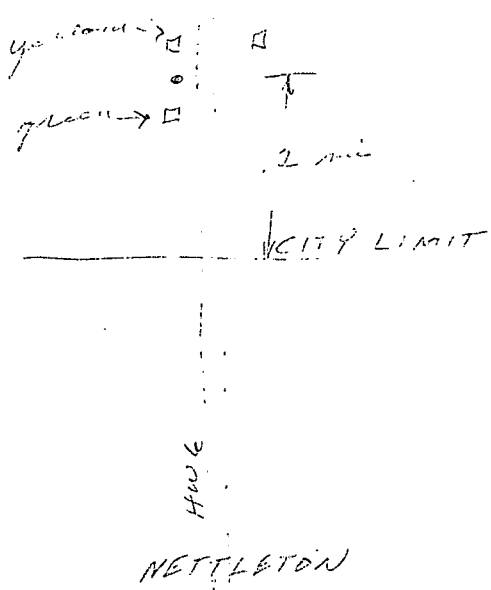 green
.2 mi
CITY LIMIT
HW 6
NETTLETON